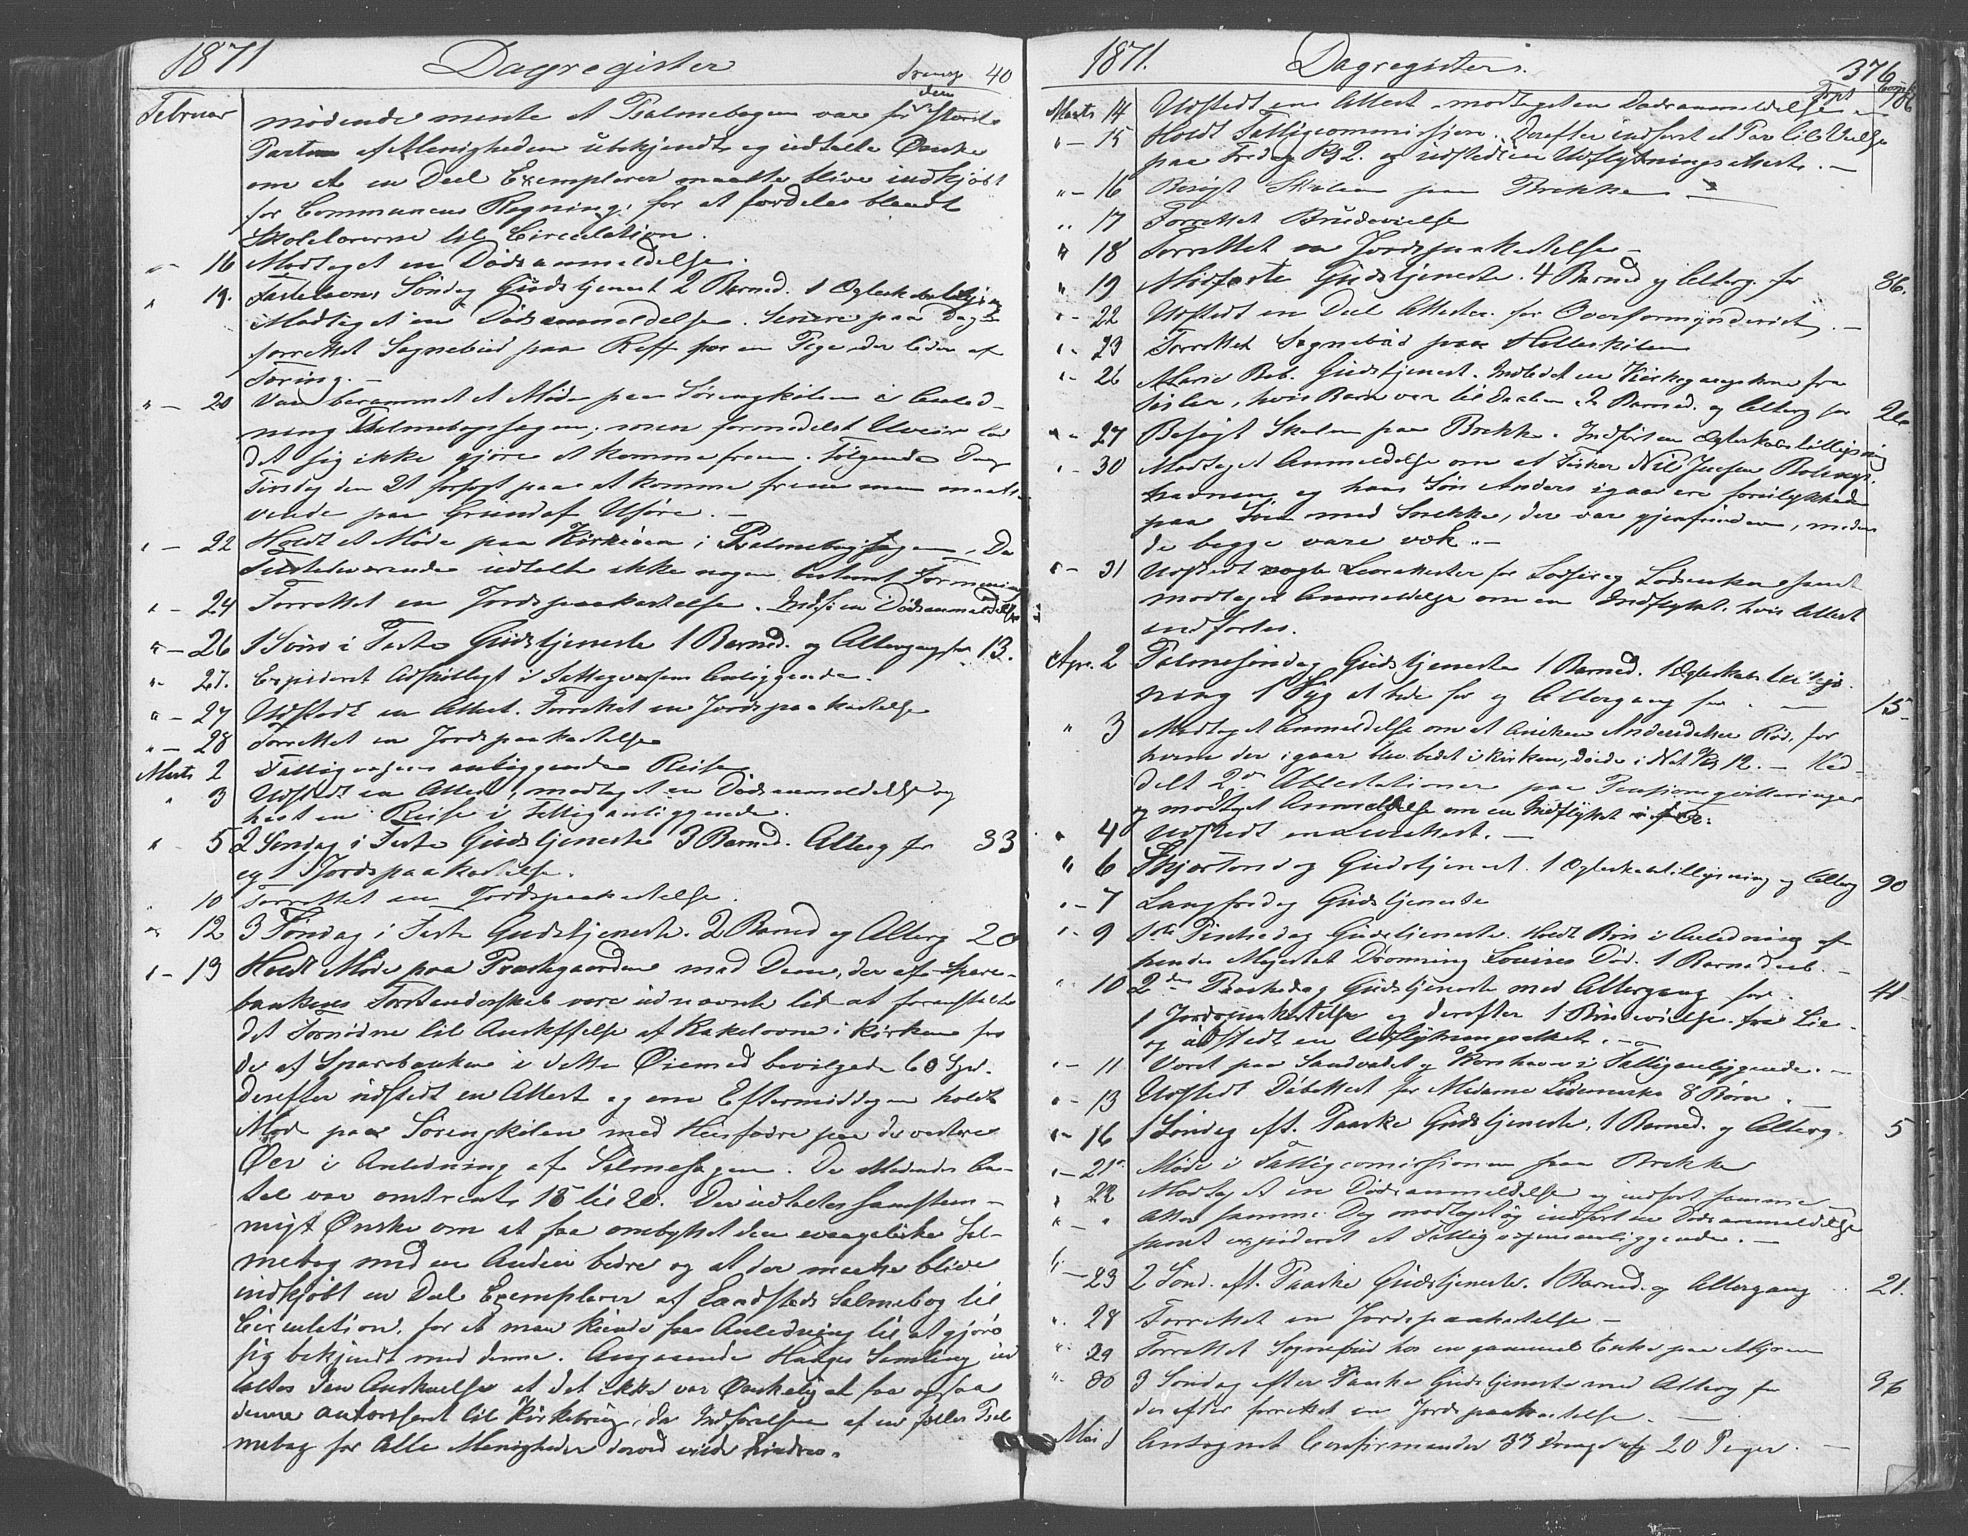 1871 Dagregister
Transp. 40
Februar mødende mente at Psalmebogen var for den største
Parten af Menigheden ubekjendt og udtalte Ønske
om at en Deel Exemplarer maatte blive indkjøbt
for Communens Regning, for at fordeles blandt
Skolelærerne til Circulation.
" - 16 Modtaget en Dødsanmeldelse.
" 19. Fastelavns Søndag Gudstjenest 2 Barned. 1 Ægteskabslysn
Modtaget en Dødsanmeldelse. Senere paa Dagen
forrettet Sognebud paa Reff hos en Pige der lider af
Tæring. -
" - 20 Var berammet et Møde paa Sørengkilen i Anled-
ning Psalmebogssagen, men formedelst Uveir lod
det sig ikke gjøre at komme frem. Følgende Dag
Tirsdag den 21 forsøgt paa at komme frem men maatte
vende paa Grund af Uføre. -
" - 22 Holdt et Møde paa Kirkøen i Psalmebogssagen. De
Tilstedeværende udtalte ikke nogen bestemt Formening
" - 24 Forrettet en Jordspaakastelse. Indf. en Dødsanmeldelse
" - 26 1 Sønd i Faste Gudstjeneste 1 Barned. og Altergang for 13.
" - 27. Expideret Adskilligt i Fattigvæsens Anliggende.
" - 27 Udstedt en Attest. Forrettet en Jordspaakastelse
" - 28 Forrettet en Jordspaakastelse
Marts 2 Fattigvæsens anliggende Reise
" 3 Udstedt en Attest, modtaget en Dødsanmeldelse og
havt en Reise i Fattiganliggende.
" 5 2 Søndag i Faste Gudstjeneste 3 Barned. Alterg for 33
og 1 Jordspaakastelse.
10 Forrettet en Jordspaakastelse.
" 12 3 Søndag i Faste Gudstjeneste. 2 Barned og Alterg 20
" - 13 Holdt Møde paa Præstegaarden med Dem, der af Spare-
bankens Forstanderskab vare udnævnte til at foranstalte
det Fornødne til Anskaffelse af Kakelovne i Kirken for
de af Sparebanken i dette Øiemed bevilgede 60 Spd.
Derefter udstedt en Attest og om Eftermiddagen holdt
Møde paa Sørengkilen med Huusfædre paa de vestre
Øer i Anledning af Salmesagen. De Mødendes An-
tal var omtrent 15 til 20. Der udtaltes samstem-
migt Ønske om at faa ombyttet den evangeliske Sal-
mebog med en Anden bedre og at der maatte blive
indkjøbt en Deel Exemplarer af Landstads Salmebog til
Circulation, for at man kunde faa Anledning til at gjøre
sig bekjendt med denne. Angaaende Hauges Samling ud
taltes den Anskuelse at det ikke var Ønskeligt at faa ogsaa
denne autoriseret til Kirkebrug, da Indførelsen af en fælles Psal
mebog for Alle Menigheder derved vilde hindres.
1871. Dagregister. 376
Trpt 106
Marts 14 Udstedt en Attest modtaget en Dødsanmeldelse
" - 15 Holdt Fattigcommission. Derefter indført et Par til Vielse
paa Fredag Kl 2. og udstedt en Udflytningsattest. -
" - 16 Besøgt Skolen paa Brekke
" 17 Forrettet Brudevielse
" 18 Forrettet en Jordspaakastelse -
" 19 Midfaste Gudstjeneste. 4 Barned og Alterg. for 36.
" - 22 Udstedt en Deel Attester for Overformynderiet. -
" - 23 Forrettet Sognebud paa Holleskilen
" - 26 Mariæ Beb. Gudstjenest. Indledet en Kirkegangskone fra
hvis Barn var til Daaben. 2 Barned. og Alterg for 26
" - 27 Besøgt Skolen paa Brekke. Indført en Ægteskabslysning
" - 30 Modtaget Anmeldelse om at Fisker Nils
havnen og hans Søn Anders igaar ere forulykkede
paa Søen med Snekke, der var gjenfunden, medens
de begge vare væk. -
" - 31 Udstedt nogle Attester for Lodser og Lodsenker samt
modtaget Anmeldelse om en Indflyttet, hvis Attest
indførtes.
Apr. 2 Palmesøndag Gudstjeneste 1 Barned. 1 Ægteskabs lys-
ning 1 Syg at bede for og Altergang for 15
" 3 Modtaget Anmeldelse om at Aniken Andersdatter Rød, for
hvem der igaar blev bedet i Kirken, døde i Nat Kl 12. - Med-
delt 2de Attestationer paa Pensionsqvitteringer
og modtaget Anmeldelse om en Indflyttet
" 4 Udstedt en
" 6 Skjærtorsdag Gudstjenest. 1 Ægteskabslysning og Alterg 90
" - 7 Langfredag Gudstjeneste
" - 9 1ste Paaskedag Gudstjeneste. Holdt Bøn i Anledning af
Hendes Majestæt Dronning Lovises Død. 1 Barnedaab. -
" 10 2den Paaskedag Gudstjeneste med Altergang for 41
1 Jordspaakastelse og derefter 1 Brudevielse fra Lie
og udstedt en Udflytningsattest. -
" - 11 Været paa Sandvadet og Korshavn i Fattiganliggende. -
" - 13 Udstedt Døbeattest for Madame 8 Børn.
" - 16 1 Søndag eft. Paaske Gudstjeneste. 1 Barned. og Alterg. 5
" - 21 Møde i Fattigcomissionen paa Brekke
" 22 Modtaget en Dødsanmeldelse og indført samme
" - " Atter samme Dag modtaget og indført en Dødsanmeldelse
samt expideret et Fattigvæsensanliggende. -
" - 23 2 Sønd. eft. Paaske Gudstjeneste. 1 Barned. og Altergang 21.
" 28 Forrettet en Jordspaakastelse -
" 29 Forrettet Sognebud hos en gammel Enke paa
" 30 3 Søndag efter Paaske Gudstjeneste med Alterg for 36
derefter forrettet en Jordspaakastelse. -
Mai 1 Antegnet Confirmander 33 Drenge og 20 Piger. -